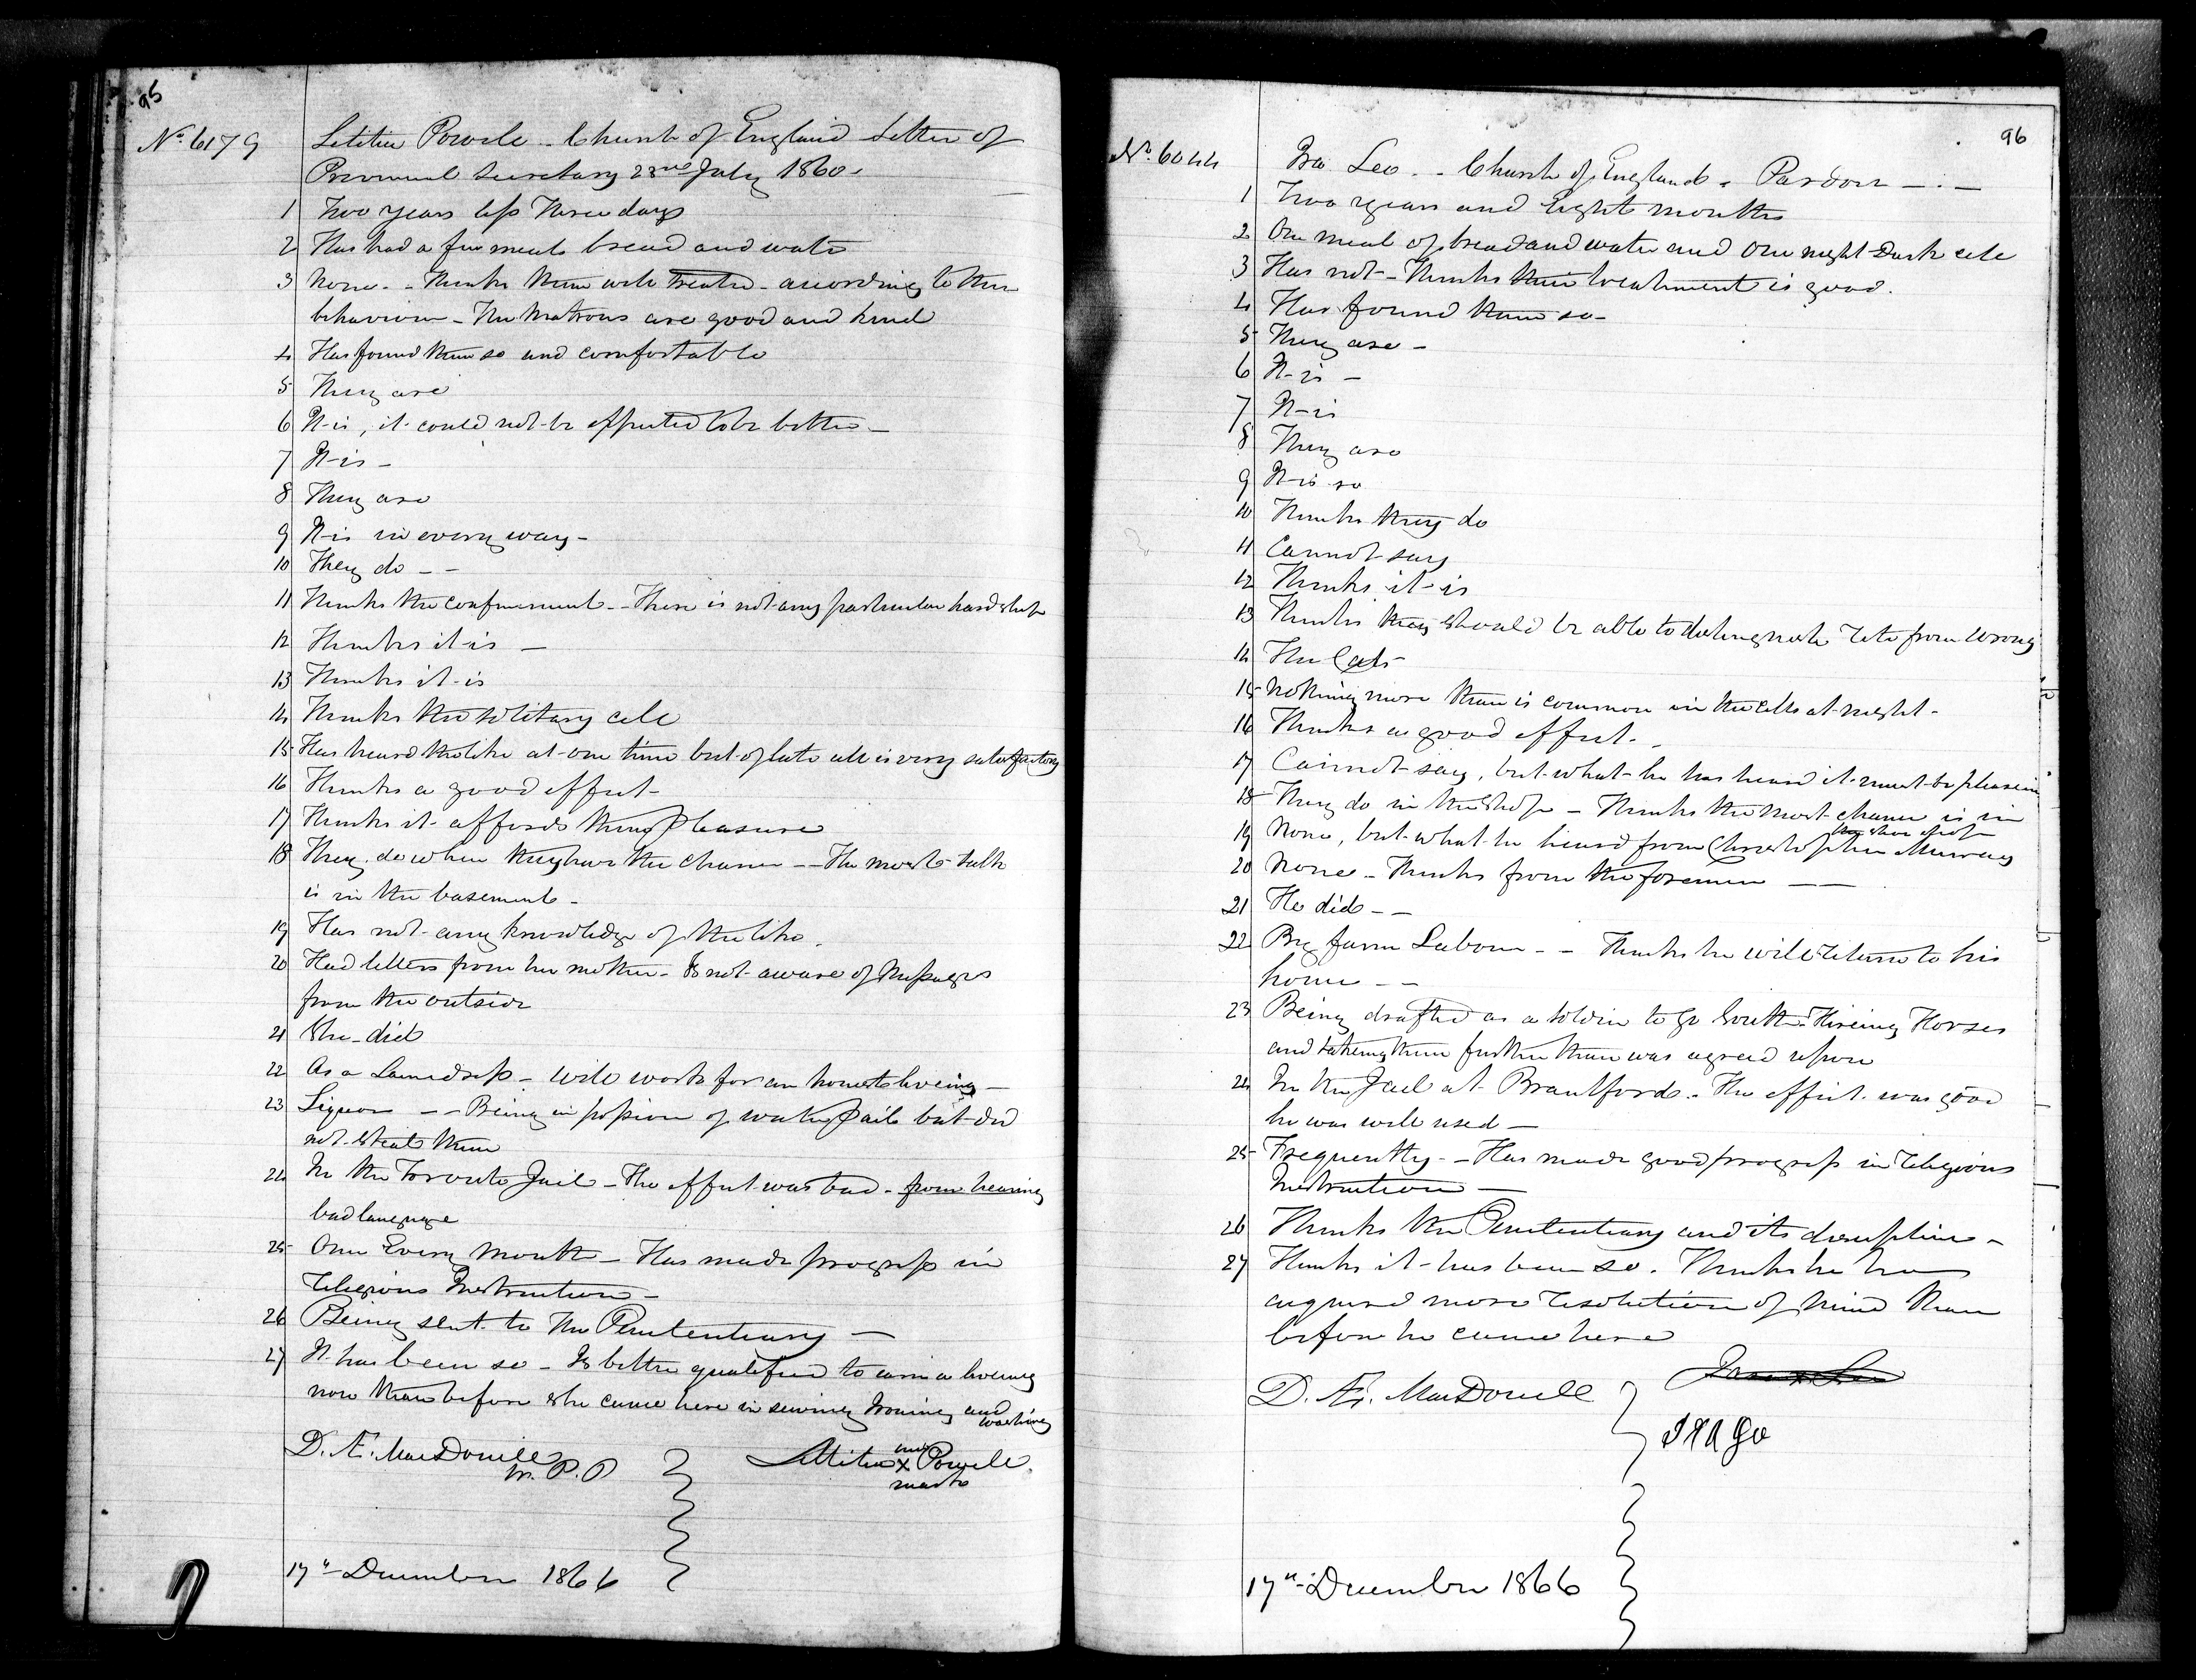 95
No. 6179
Letitia Powell - Church of England Letter of
Provincial Secretary 23rd July 1860 -
1 Two years less Three days
2 Has had a few meals bread and water
3 None. - Thinks them well Treated - according to their
behaviour - The Matrons are good and kind
4 Has found them so and comfortable
5 They are
6 It is, it could not be expected to be better -
7 It is -
8 They are
9 It is in every way -
10 They do - -
11 Thinks the confinement - There is not any particular hardship
12 Thinks it is -
13 Thinks it is
14 Thinks the solitary cell
15 Has heard the like at one time but of late all is very satisfactory
16 Thinks a good effect -
17 Thinks it affords them pleasure
18 They do when they have the chance - - The most talk
is in the basement -
19 Has not any knowledge of the like.
20 Had letters from her mother - Is not aware of Messages
from the outside
21 She did
22 As a Laundress - Will work for an honest liveing -
23 Liquor - - Being in possion of water pails but did
not steal them
24 In the Toronto Jail - The effect was bad - from hearing
bad language
25 Once Every Month - Has made progress in
Religious Instruction -
26 Being sent to the Penitentiary -
27 It has been so - Is better qualified to earn a liveing
now than before she came here in sewing Ironing and
washing
D. Æ. MacDonell
W. P. P
Letitia her X mark Powell
17th December 1866
96
No. 6044
Ira Leo. - Church of England - Pardon - . -
1 Two years and Eight months
2 One meal of bread and water and One night Dark cell
3 Has not - Thinks their treatment is good.
4 Has found them so -
5 They are -
6 It is -
7 It is
8 They are
9 It is so
10 Thinks they do
11 Cannot say
12 Thinks it is
13 Thinks they should be able to distinguish Rite from Wrong
14 The Cats
15 Nothing more than is common in the cells at night -
16 Thinks a good effect -
17 Cannot say, but what he has heard it must be pleasein
18 They do in the Shop - Thinks the most chance is in
the shoe shop
19 None, but what he heard from Christopher Murray
20 None - Thinks from the foremen - -
21 He did - -
22 By farm Labour - - Thinks he will Return to his
home - -
23 Being drafted as a soldier to go South - Hireing Horses
and takeing them further than was agreed upon
24 In the Jail at Brantford - The effect was good
he was well used -
25 Frequently - - Has made good progress in Religious
Instruction -
26 Thinks the Penitentiary and its discipline -
27 Thinks it has been so. Thinks he has
acquired more Resolution of mind than
before he came here
D. Æ. MacDonell
Ira x Leo
IRA go
17th December 1866